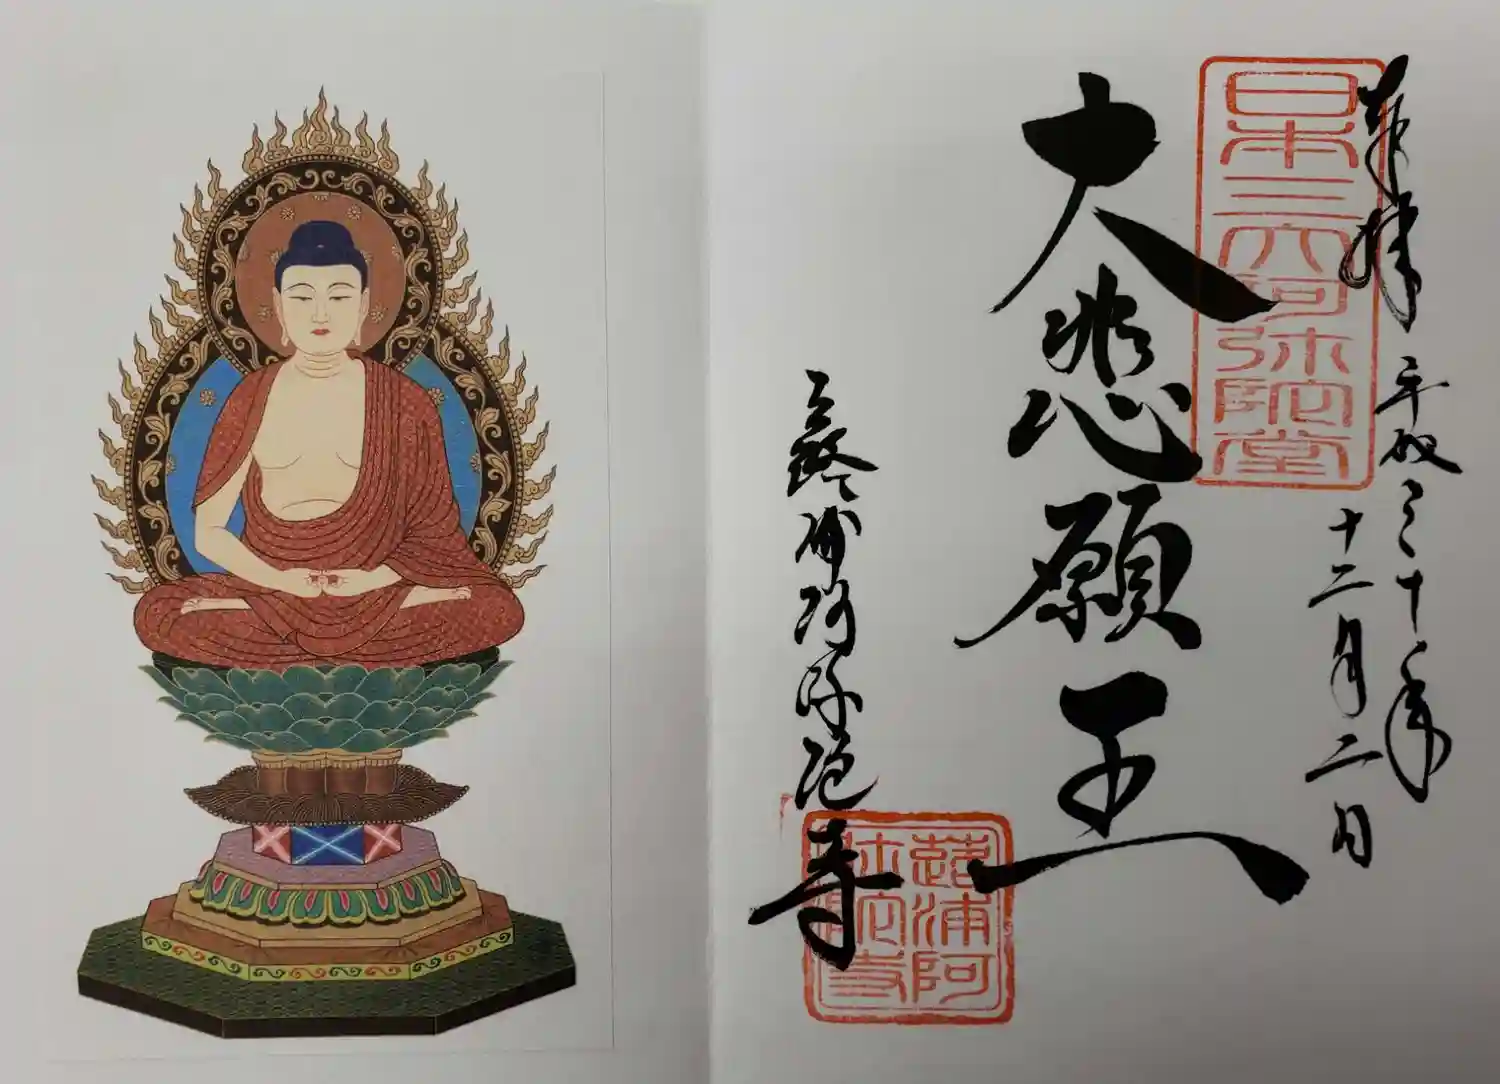 奉拝
平成三十年
十二月二日
日本三大阿弥陀堂
大悲願王
蕗浦阿弥陀寺
蕗浦阿
弥陀寺